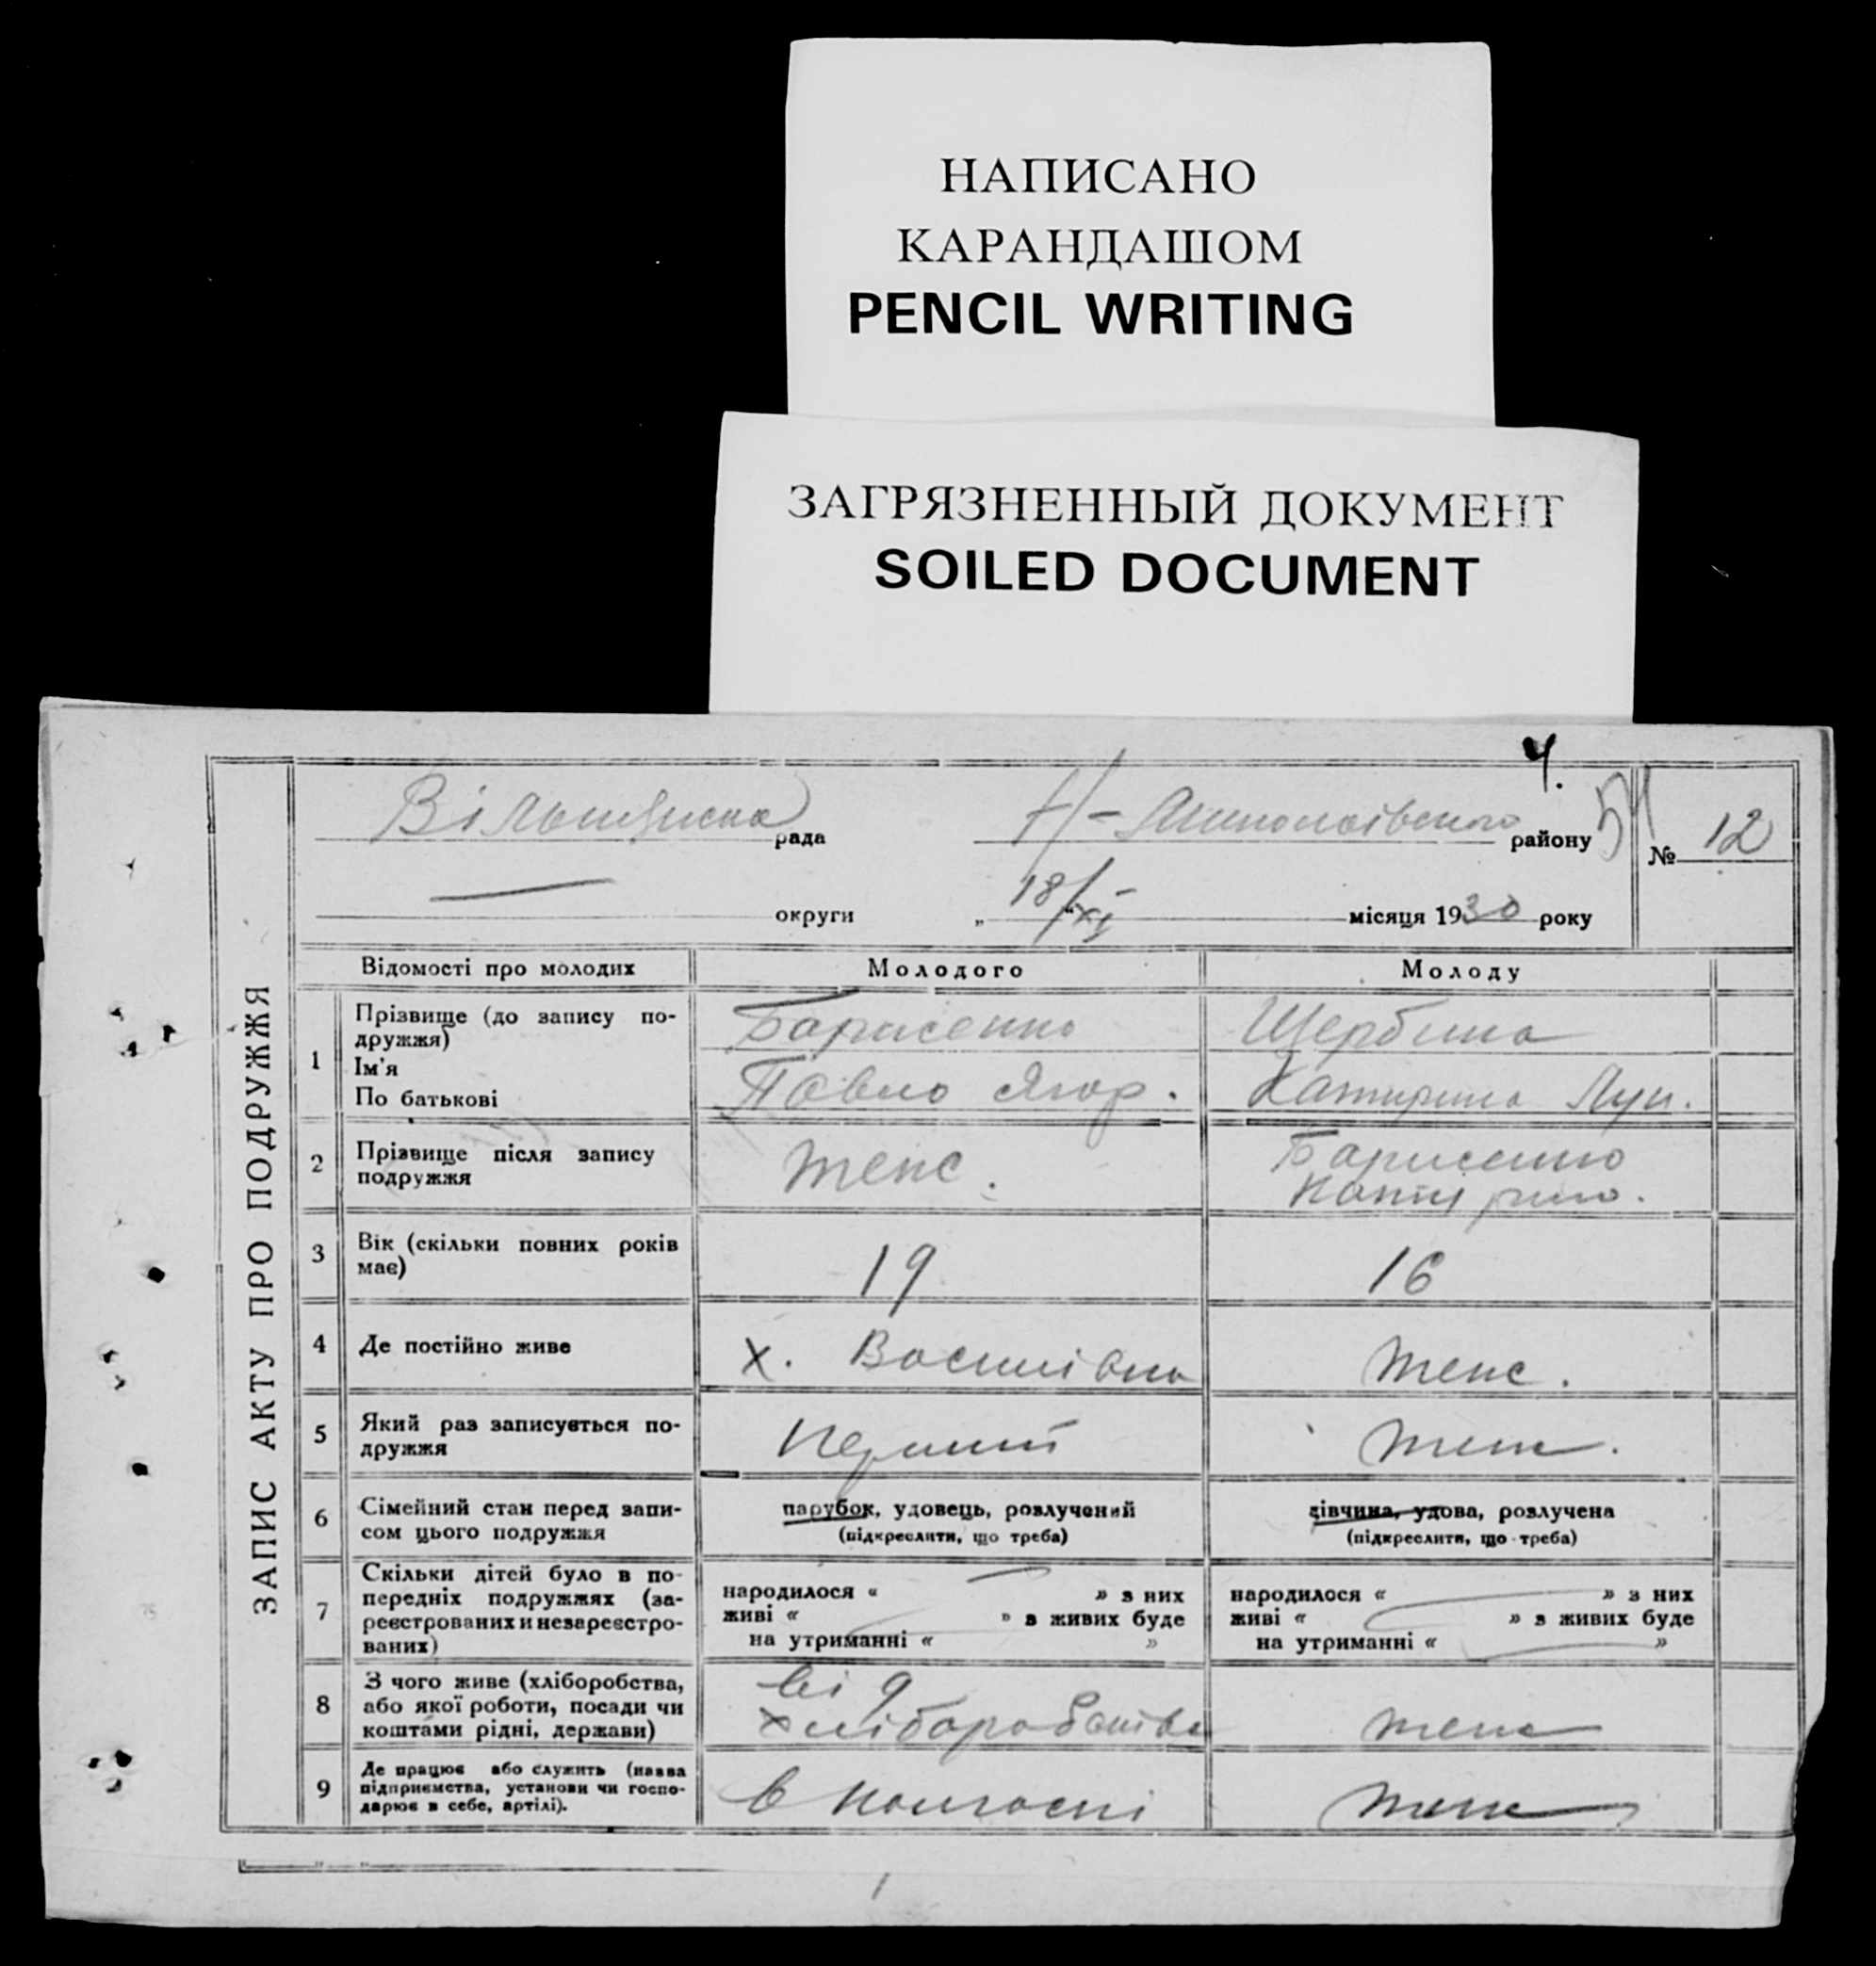 НАПИСАНО
КАРАНДАШОМ
PENCIL WRITING
ЗАГРЯЗНЕННЫЙ ДОКУМЕНТ
SOILED DOCUMENT
4.
рада
району
№ 12
округи „ 18/XI місяця 1930 року
ЗАПИС АКТУ ПРО ПОДРУЖЖЯ
Відомості про молодих
Молодого
Молоду
1
Прізвище (до запису по-
дружжя)
Ім'я
По батькові
Борисенко
Павло Ягор.
Щербина
Катирина Лук.
2
Прізвище після запису
подружжя
теж.
Борисенко
Катірина.
3
Вік (скільки повних років
має)
19
16
4
Де постійно живе
х. Василівка
теж.
5
Який раз записується по-
дружжя
перший
теж.
6
Сімейний стан перед запи-
сом цього подружжя
парубок, удовець, розлучений
(підкреслити, що треба)
дівчина, удова, розлучена
(підкреслити, що треба)
7
Скільки дітей було в по-
передніх подружжях (за-
реєстрованих и незареєстро-
ваних)
народилося « » з них
живі « » з живих буде
на утриманні « »
народилося « » з них
живі « » з живих буде
на утриманні « »
8
З чого живе (хліборобства,
або якої роботи, посади чи
коштами рідні, держави)
від
хліборобства
теж
9
Де працює або служить (назва
підприємства, установи чи госпо-
дарює в себе, артілі).
в колгоспі
теж